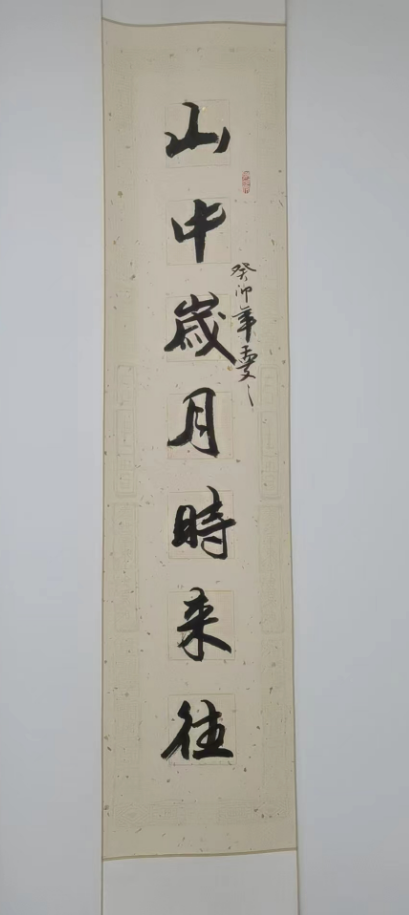 山中歳月時来往
癸卯年夏